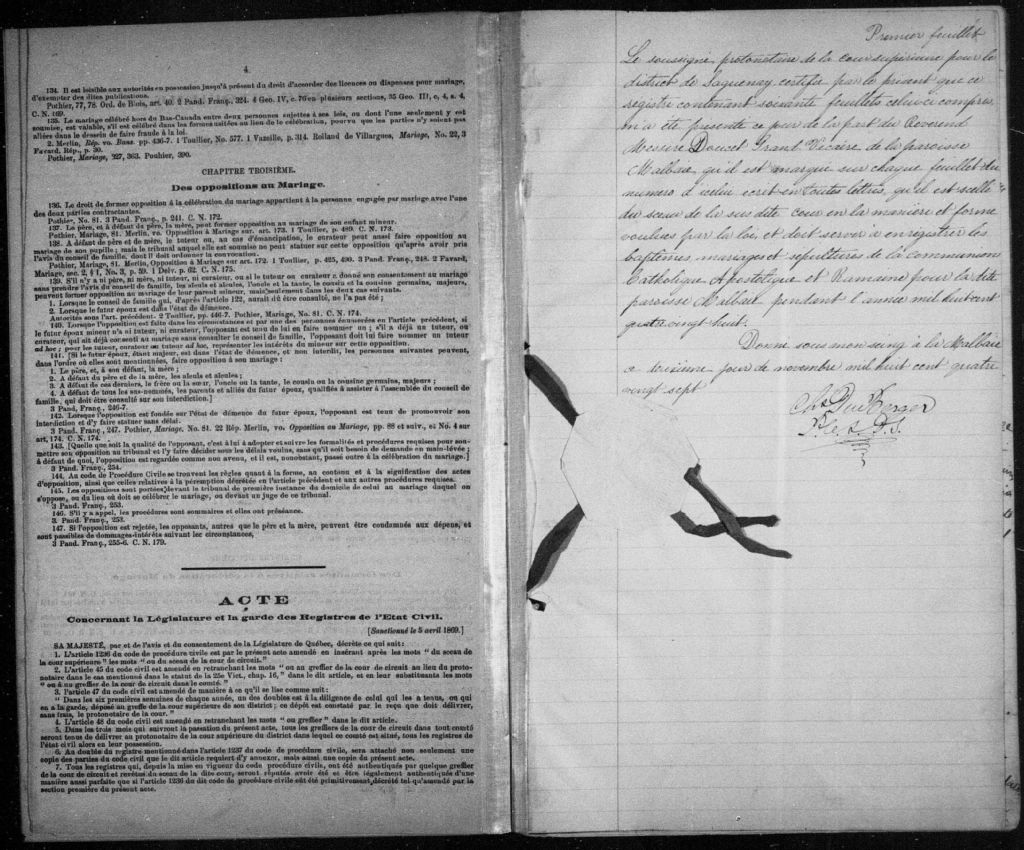 4.
134. Il est loisible aux autorités en possession jusqu'à présent du droit d'accorder des licences ou dispenses pour mariage,
d'exempter des dites publications.
Pothier, 77, 78. Ord. de Blois, art. 40. 2 Pand. Franç., 324. 4 Geo. IV, c. 76 en plusieurs sections, 35 Geo. III, c, 4, s. 4,
C. N. 169.
135. Le mariage célébré hors du Bas-Canada entre deux personnes sujettes à ses lois, ou dont l'une seulement y est
soumise, est valable, s'il est célébré dans les formes usitées au lieu de la célébration, pourvu que les parties n'y soient pas
allées dans le dessein de faire fraude à la loi.
2. Merlin, Rép. vo. Bans. pp. 436-7. 1 Toullier, No. 577. 1 Vazille, p. 314. Rolland de Villargues, Mariage, No. 22, 3
Favard. Rép., p. 30.
Pothier, Mariage, 227, 363. Pouhier, 390.
CHAPITRE TROISIÈME.
Des oppositions au Mariage.
136. Le droit de former opposition à la célébration du mariage appartient à la personne engagée par mariage avec l'une
des deux parties contractantes.
Pothier, No. 81. 3 Pand. Franç., p. 241. C. N. 172.
137. Le père, et à défaut du père, la mère, peut former opposition au mariage de son enfant mineur.
Pothier, Mariage, 81. Merlin, vo. Opposition à Mariage sur. art. 173. 1 Toullier, p. 489. C. N. 173.
138. A défaut de père et de mère, le tuteur ou, au cas d'émancipation, le curateur peut aussi faire opposition au
mariage de son pupille; mais le tribunal auquel elle est soumise ne peut statuer sur cette opposition qu'après avoir pris
l'avis du conseil de famille, dont il doit ordonner la convocation.
Pothier, Mariage, 81. Merlin, Opposition à Mariage sur art. 172. 1 Toullier, p. 425, 490. 3 Pand. Franç. 248. 2 Favard,
Mariage, sec. 2, § 1, No. 3, p. 59. 1 Delv. p. 62. C. N. 175.
139. S'il n'y a ni père, ni mère, ni tuteur, ni curateur, ou si le tuteur ou curateur a donné son consentement au mariage
sans prendre l'avis du conseil de famille, les aïeuls et aïeules, l'oncle et la tante, le cousin et la cousine germains, majeurs,
peuvent former opposition au mariage de leur parent mineur, mais seulement dans les deux cas suivants.
1. Lorsque le conseil de famille qui, d'après l'article 122, aurait dû être consulté, ne l'a pas été;
2. Lorsque le futur époux est dans l'état de démence.
Autorités sous l'art. précédent. 2 Toullier, pp. 446-7. Pothier, Mariage, No. 81. C. N. 174.
140. Lorsque l'opposition est faite dans les circonstances et par une des personnes énumérées en l'article précédent, si
le futur époux mineur n'a ni tuteur, ni curateur, l'opposant est tenu de lui en faire nommer un; s'il a déjà un tuteur, ou
curateur, qui ait déjà consenti au mariage sans consulter le conseil de famille, l'opposant doit lui faire nommer un tuteur
ad hoc; pour les tuteur, curateur ou tuteur ad hoc, représenter les intérêts du mineur sur cette opposition.
141. [Si le futur époux, étant majeur, est dans l'état de démence, et non interdit, les personnes suivantes peuvent,
dans l'ordre où elles sont mentionnées, faire opposition à son mariage:
1. Le père, et, à son défaut, la mère;
2. A défaut du père et de la mère, les aïeuls et aïeules;
3. A défaut de ces derniers, le frère ou la sœur, l'oncle ou la tante, le cousin ou la cousine germains, majeurs;
4. A défaut de tous les sus-nommés, les parents et alliés du futur époux, qualifiés à assister à l'assemblée du conseil de
famille, qui doit être consulté sur son interdiction.]
3 Pand. Franç., 246-7.
142. Lorsque l'opposition est fondée sur l'état de démence du futur époux, l'opposant est tenu de promouvoir son
interdiction et d'y faire statuer sans délai.
3 Pand. Franç., 247. Pothier, Mariage, No. 81. 22 Rép. Merlin, vo. Opposition au Mariage, pp. 88 et suiv., et No. 4 sur
art. 174. C. N. 174.
143. [Quelle que soit la qualité de l'opposant, c'est à lui à adopter et suivre les formalités et procédures requises pour sou-
mettre son opposition au tribunal et l'y faire décider sous les délais voulus, sans qu'il soit besoin de demande en main-levée;
à défaut de quoi, l'opposition est regardée comme non avenu, et il est, nonobstant, passé outre à la célébration du mariage.]
3 Pand. Franç., 254.
144. Au code de Procédure Civile se trouvent les règles quant à la forme, au contenu et à la signification des actes
d'opposition, ainsi que celles relatives à la péremption décrétée en l'article précédent et aux autres procédures requises.
145. Les oppositions sont portées devant le tribunal de première instance du domicile de celui au mariage duquel on
s'oppose, ou du lieu où doit se célébrer le mariage, ou devant un juge de ce tribunal.
3 Pand. Franç., 253.
146. S'il y a appel, les procédures sont sommaires et elles ont préséance.
3. Pand. Franç., 253.
147. Si l'opposition est rejetée, les opposants, autres que le père et la mère, peuvent être condamnés aux dépens, et
sont passibles de dommages-intérêts suivant les circonstances,
3 Pand. Franç., 255-6. C. N. 179.
ACTE
Concernant la Législature et la garde des Registres de l'Etat Civil.
[Sanctionné le 5 avril 1869.]
SA MAJESTÉ, par et de l'avis et du consentement de la Législature de Québec, décrète ce qui suit:
1. L'article 1236 du code de procédure civile est par le présent acte amendé en insérant après les mots "du sceau de
la cour supérieure" les mots "ou du sceau de la cour de circuit."
2. L'article 45 du code civil est amendé en retranchant les mots "ou au greffier de la cour de circuit au lieu du proto-
notaire dans le cas mentionné dans le statut de la 25e Vict., chap. 16," dans le dit article, et en leur substituants les mots
"ou à un greffier de la cour de circuit dans le comté."
3. l'article 47 du code civil est amendé de manière à ce qu'il se lise comme suit:
"Dans les six premières semaines de chaque année, un des doubles est à la diligence de celui qui les a tenus, ou qui
en a la garde, déposé au greffe de la cour supérieure de son district; ce dépôt est constaté par le reçu que doit délivrer,
sans frais, le protonotaire de la cour."
4. L'article 48 du code civil est amendé en retranchant les mots "ou greffier" dans le dit article.
5. Dans les trois mois qui suivront la passation du présent acte, tous les greffiers de la cour de circuit dans tout comté
seront tenus de délivrer au protonotaire de la cour supérieure du district dans lequel ce comté est situé, tous les registres de
l'état civil alors en leur possession.
6. Au double du registre mentionné dans l'article 1237 du code de procédure civile, sera attaché non seulement une
copie des parties du code civil que le dit article requiert d'y annexer, mais aussi une copie du présent acte.
7. Tous les registres qui, depuis la mise en vigueur du code procédure civile, ont été authentiqués par quelque greffier
de la cour de circuit et revêtus du sceau de la dite cour, seront réputés avoir été et être légalement authentiqués d'une
manière aussi parfaite que si l'article 1236 du dit code de procédure civile eût été primitivement décrété tel qu'amendé par la
section première du présent acte.
Premier feuillet
Le soussigné, protonotaire de la cour supérieure pour le
district de Saguenay certifie par le présent que ce
registre contenant soixante feuillets celui ci compris
m'a été présenté ce jour de la part du Révérend
Messire Doucet Grand Vicaire de la paroisse
Malbaie, qu'il est marqué sur chaque feuillet du
numero à celui écrit en toutes lettres, qu'il est scellé
du sceau de la sus dite cour en la manière et forme
voulues par la loi, et doit servir à enregistrer les
baptêmes mariages et sépultures de la communion
Catholique Apostolique et Romaine pour la dite
paroisse Malbaie pendent l'année mil huit cent
quatre vingt huit.
Donné sous mon seing à la Malbaie
ce jour de novembre mil huit cent quatre
vingt sept
Chs DuBerger
P. C. S. D. S.